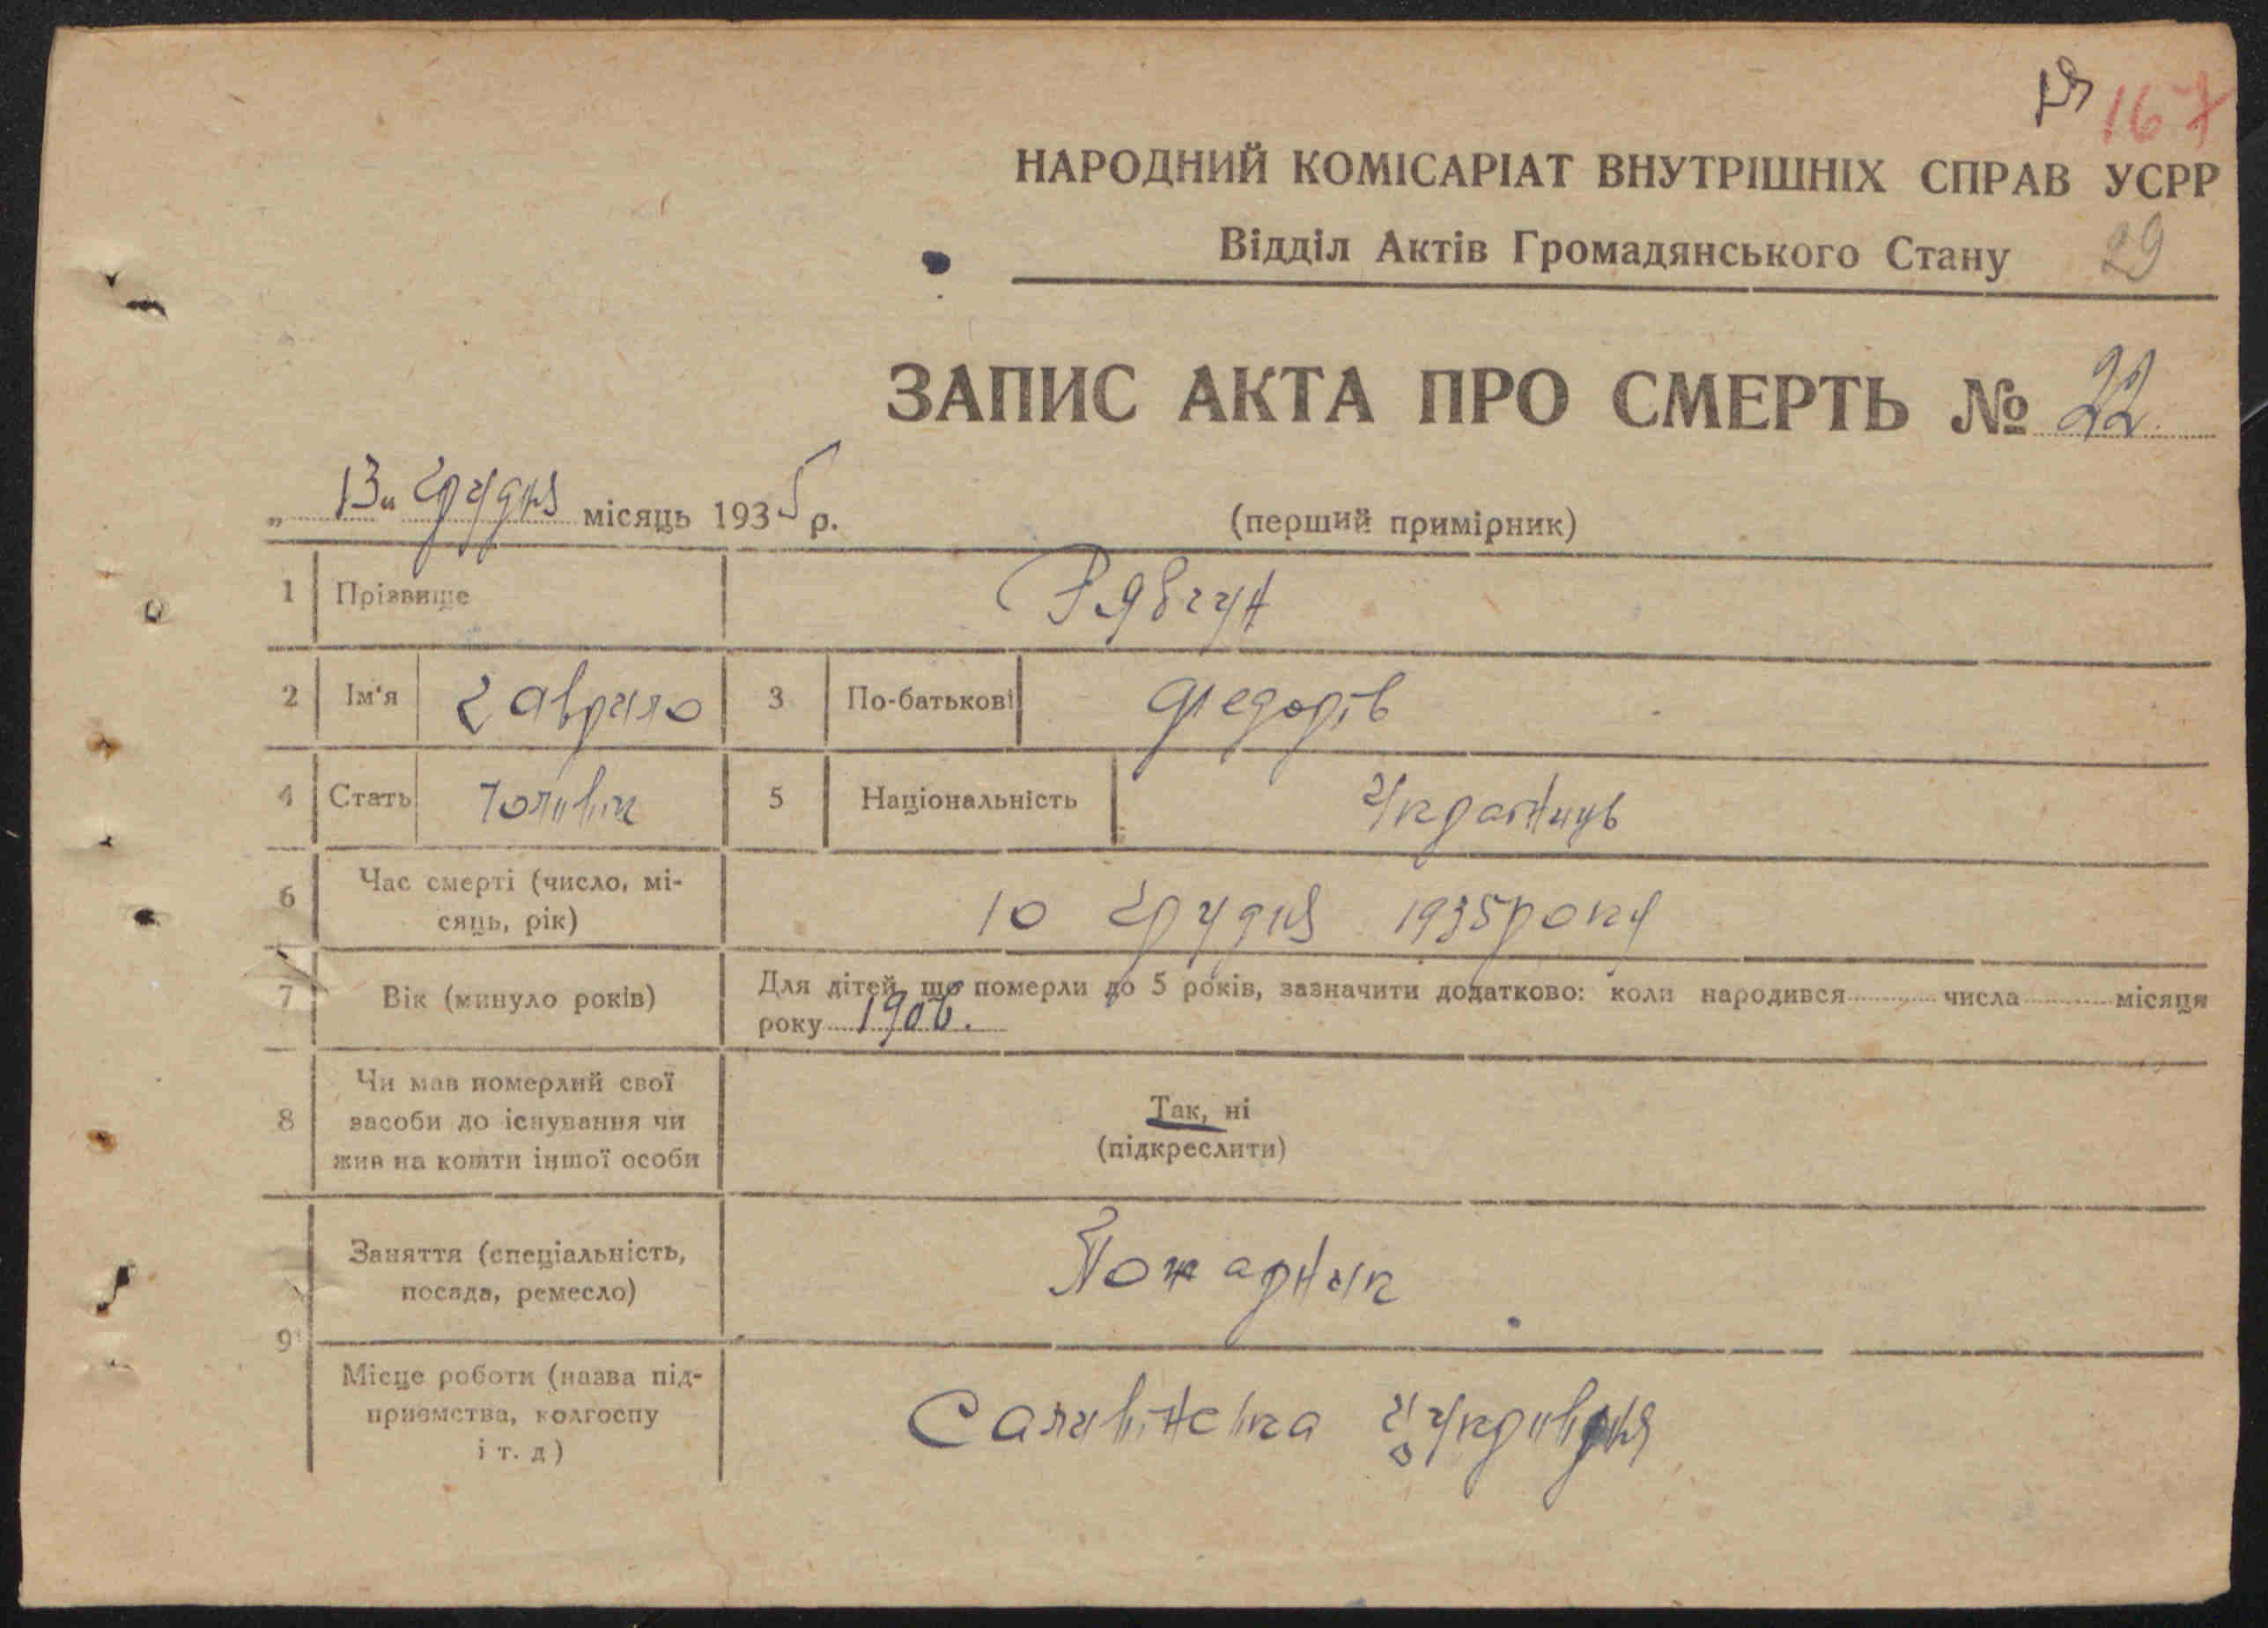 167
НАРОДНИЙ КОМІСАРІАТ ВНУТРІШНІХ СПРАВ УСРР
Відділ Актів Громадянського Стану 29
ЗАПИС АКТА ПРО СМЕРТЬ № 22
„ 13 " грудня місяць 1935 р. (перший примірник)
1 Прізвище Рябчун
2 Ім'я Гаврило 3 По-батькові Федорів
4 Стать Чоловік 5 Національність Українець
6 Час смерті (число, мі-
сяць, рік) 10 грудня 1935 року
7 Вік (минуло років) Для дітей, що померли до 5 років, зазначити додатково: коли народився числа місяця
року 1906.
8 Чи мав померлий свої
засоби до існування чи
жив на кошти іншої особи
Так, ні
(підкреслити)
9 Заняття (спеціальність,
посада, ремесло) Пожарник
Місце роботи (назва під-
приємства, колгоспу
і т. д)
Саливінська